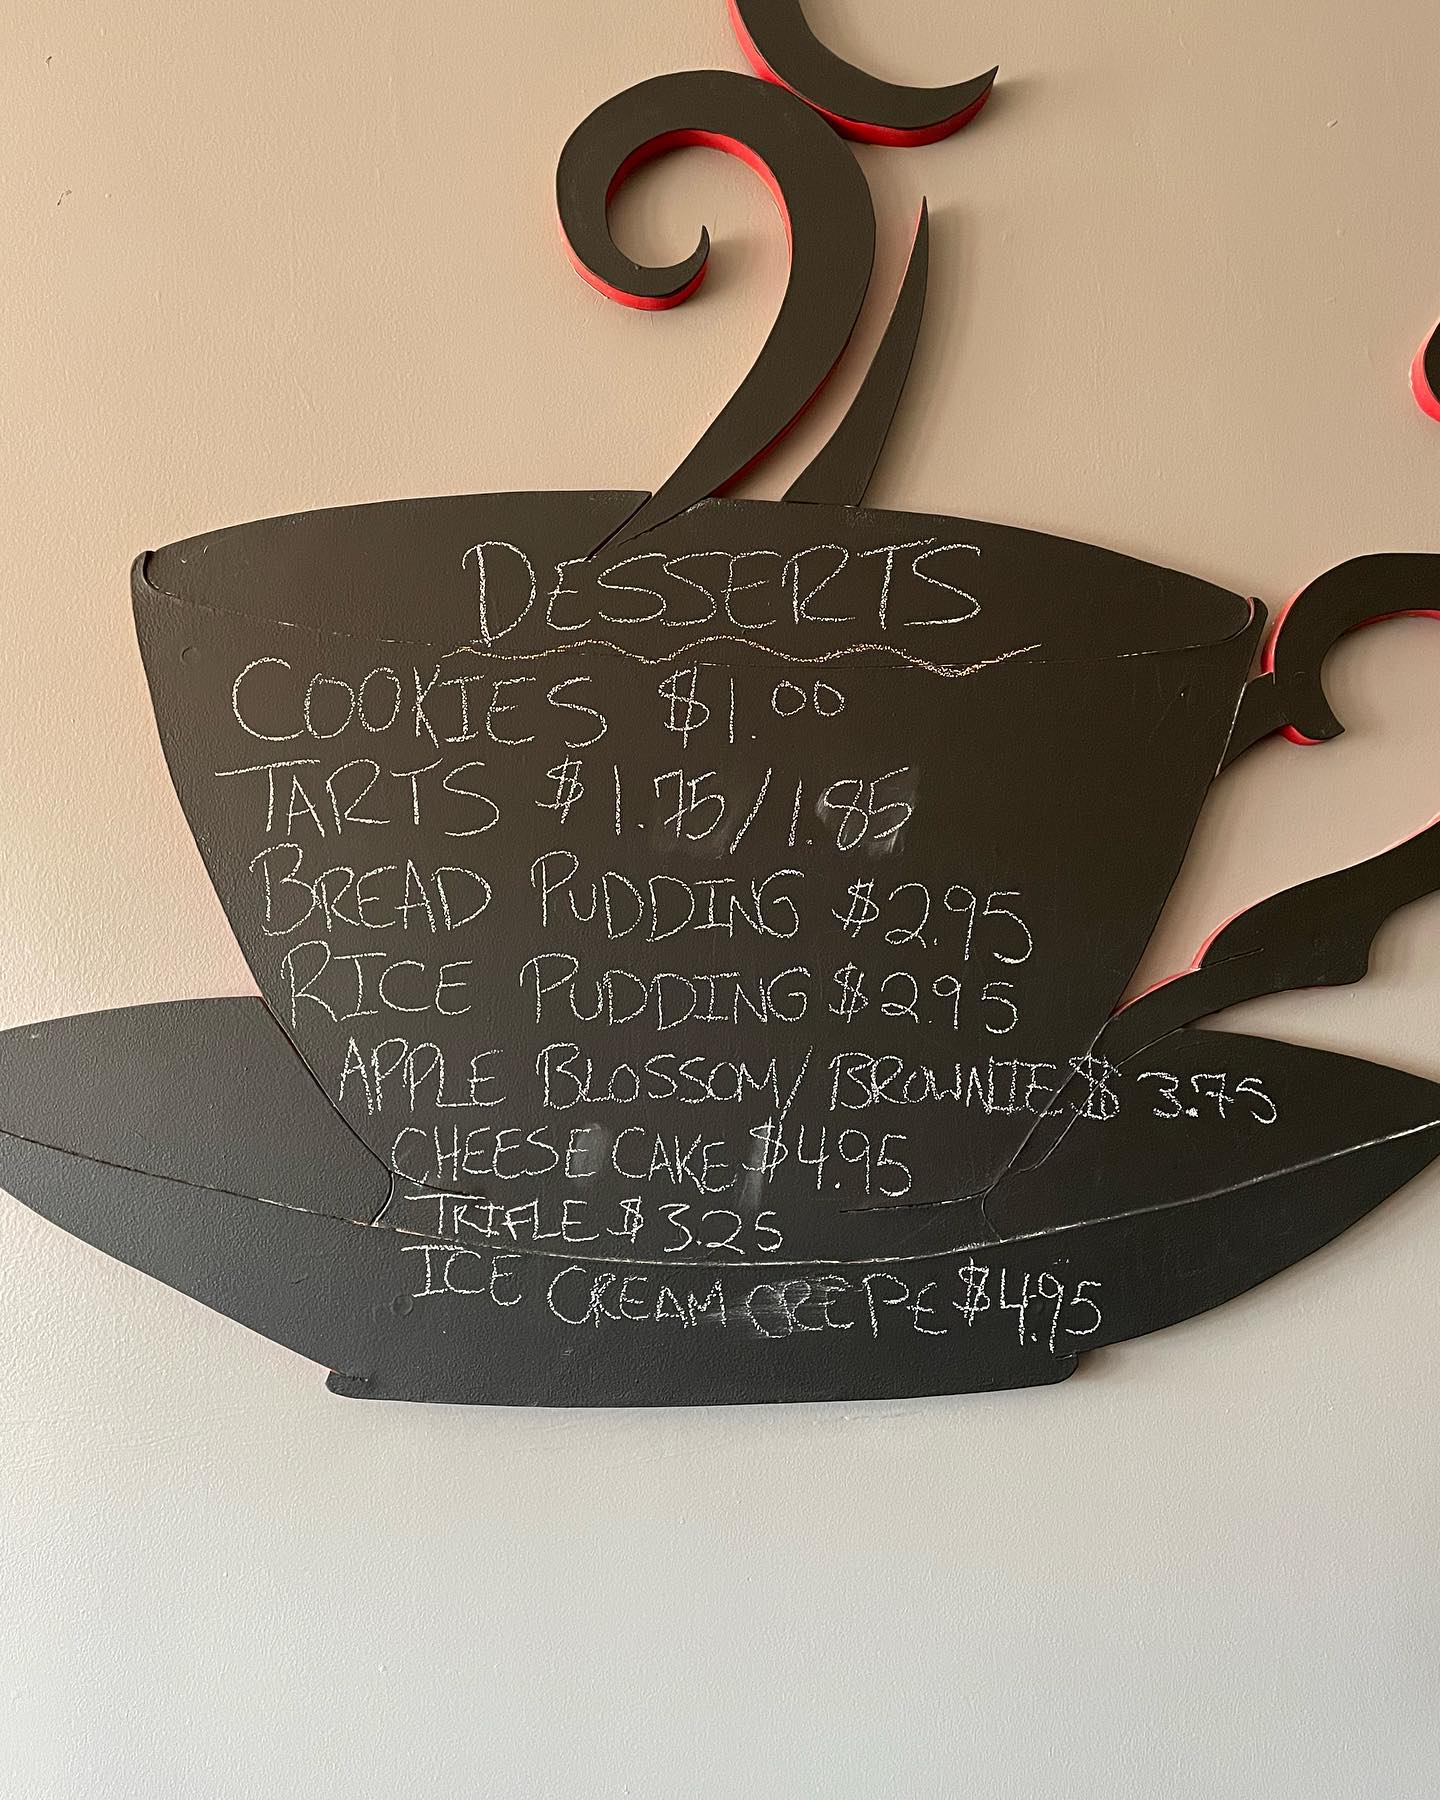 DESSERTS
COOKIES $1.00
TARTS $1.75/1.85
BREAD PUDDING $2.95
RICE PUDDING $2.95
APPLE BLOSSOM/BROWNIE $3.75
CHEESE CAKE $4.95
TRIFLE $3.25
ICE CREAM CREPE $4.95